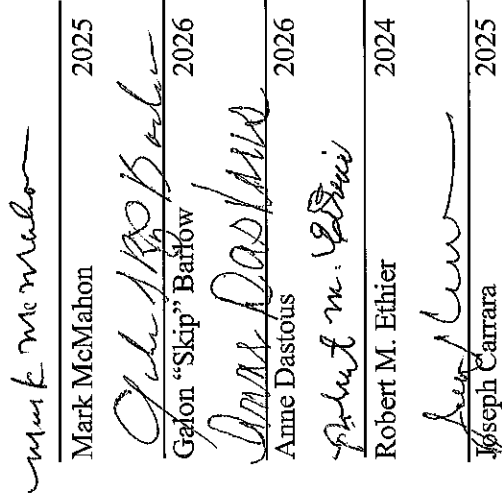 Mark McMahon
Mark McMahon 2025
Galon "Skip" Barlow
Galon "Skip" Barlow 2026
Anne Dastous
Anne Dastous 2026
Robert M. Ethier
Robert M. Ethier 2024
Joseph Carrara 2025